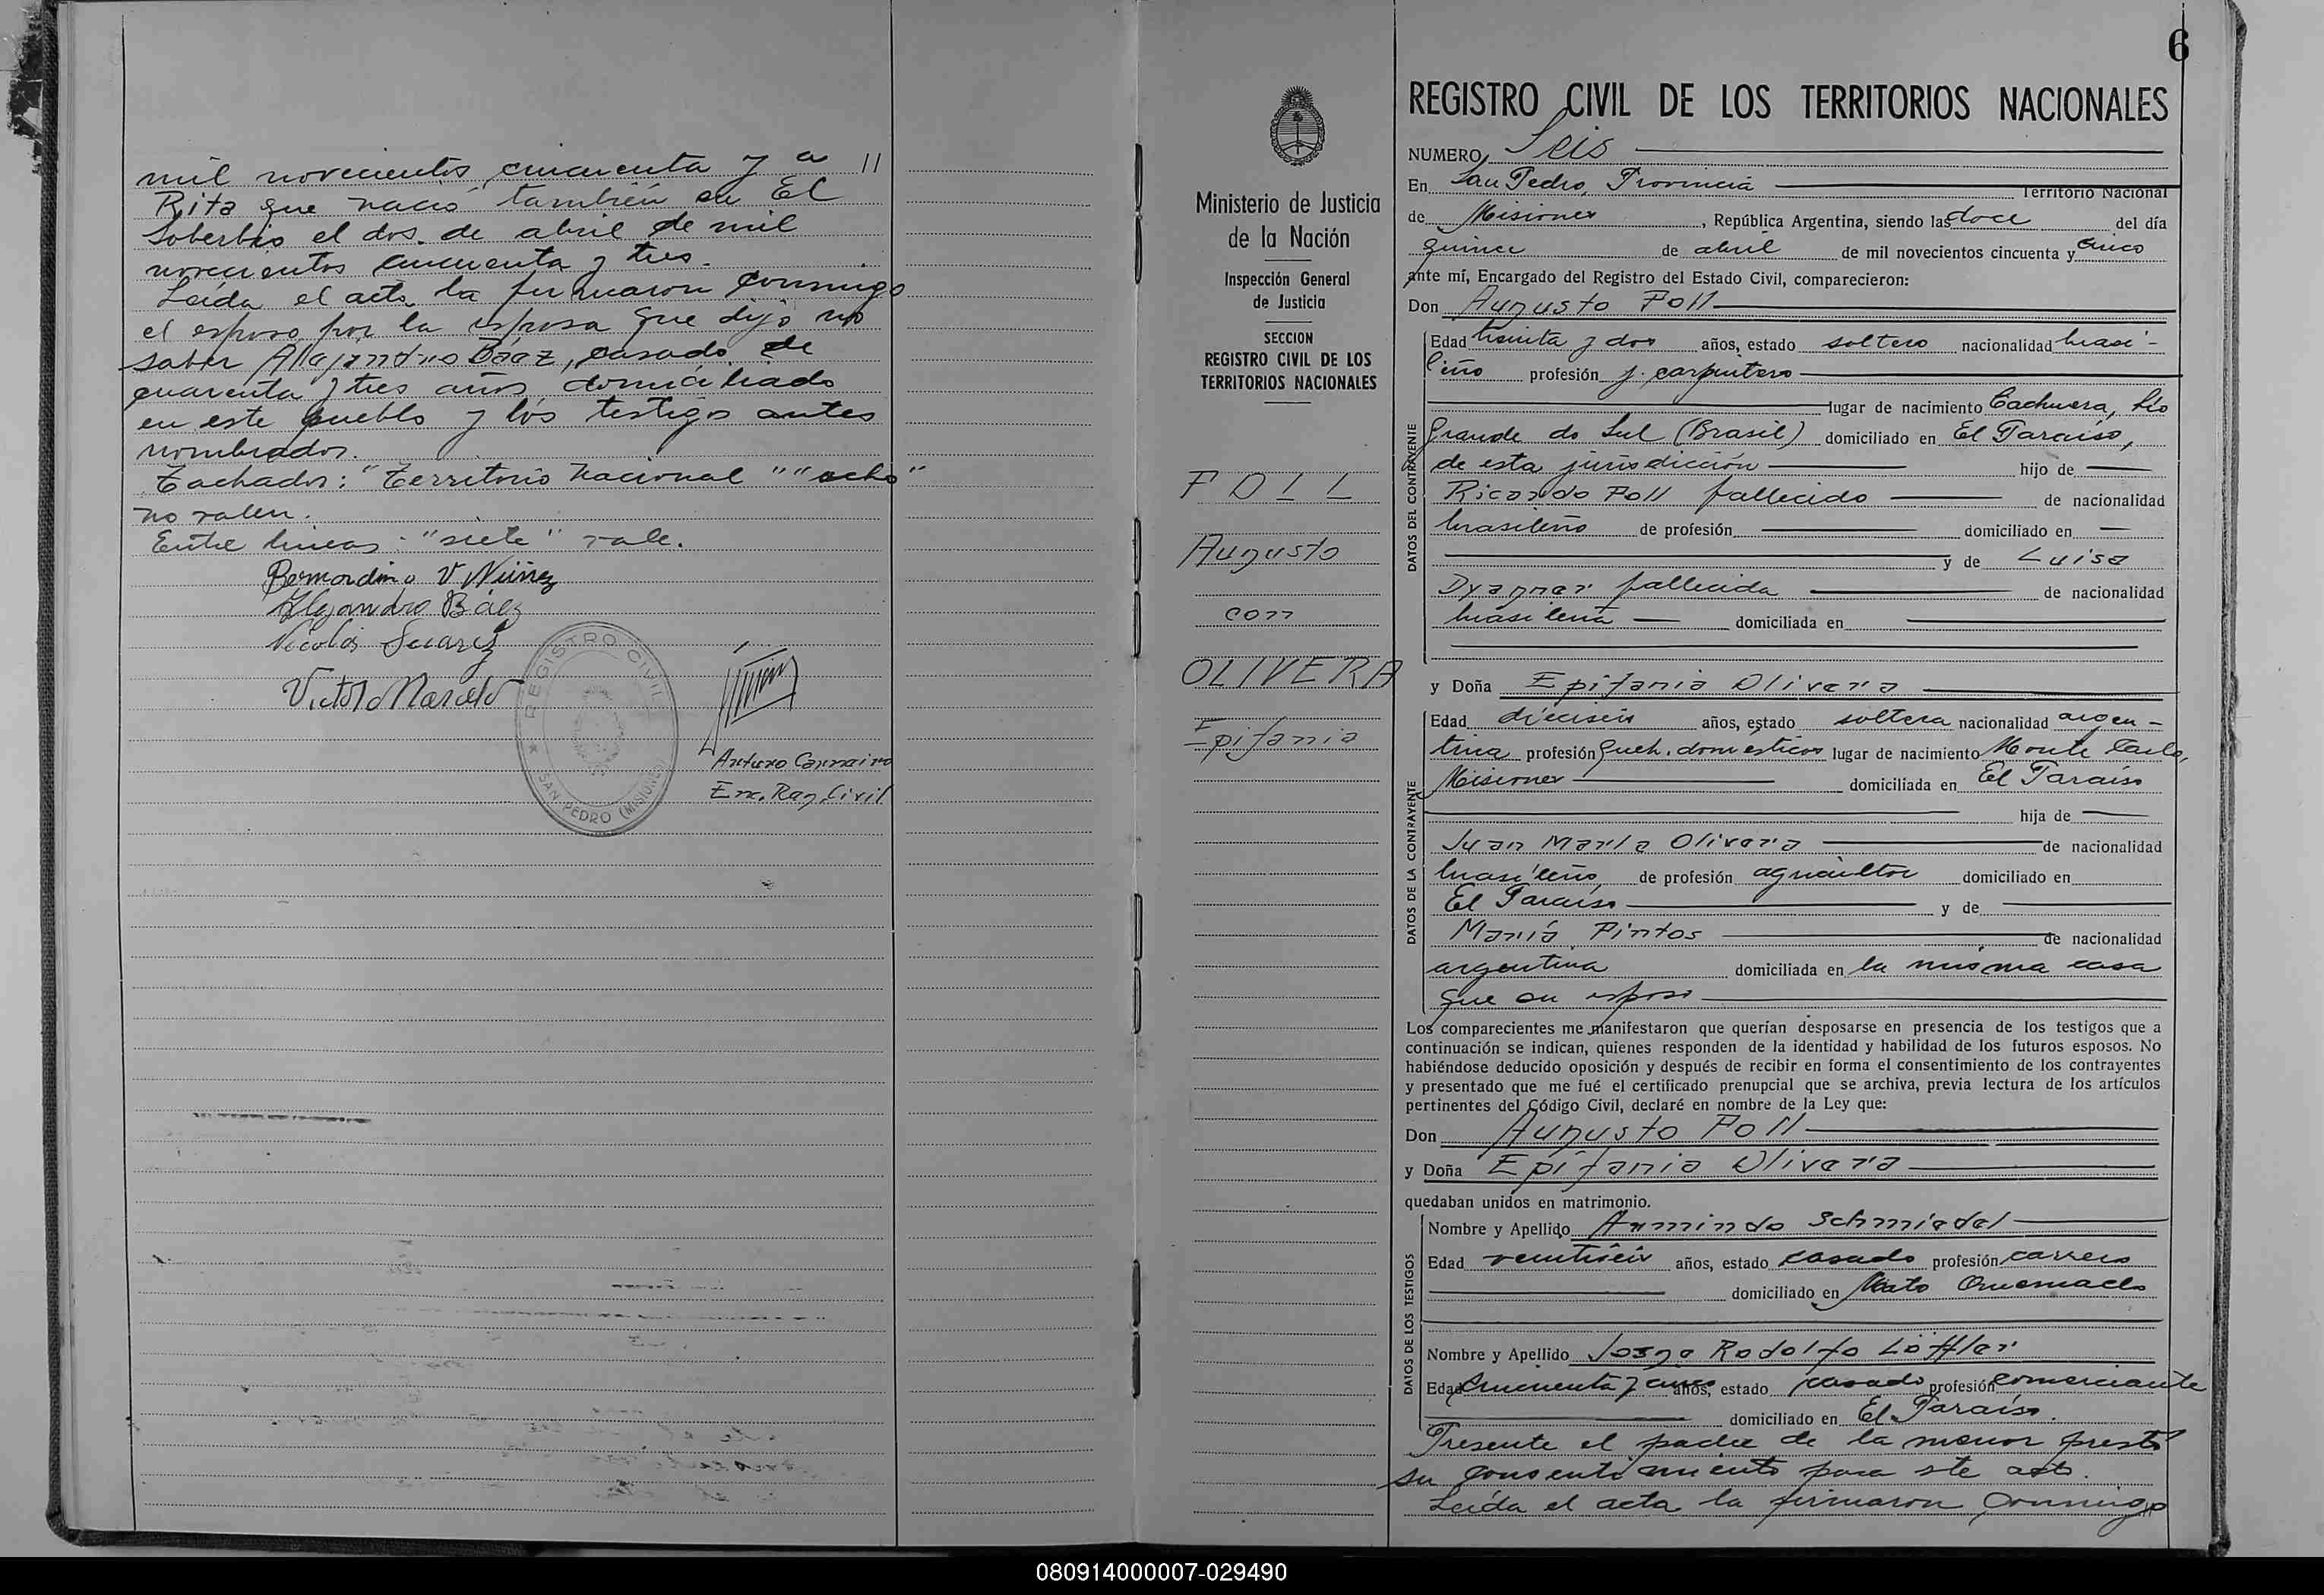 mil novecientos cincuenta y a //
Rita que nació también en El
Soberbio el dos de abril de mil
novecientos cincuenta y tres.
Leída el acta la firmaron conmigo
el esposo por la esposa que dijo no
saber Alejandro Báez, casado de
cuarenta y tres años domiciliado
en este pueblo y los testigos antes
nombrados.
Tachados: "Territorio Nacional" "ocho"
no valen.
Entre lineas: "siete" vale.
Bernardino V Núñez
Alejandro Báez
Nicolás Suarez
Victor Marcelo
REGISTRO CIVIL
SAN PEDRO (MISIONES)
Arturo Carneiro
Enc. Reg. Civil
6
Ministerio de Justicia
de la Nación
Inspección General
de Justicia
SECCION
REGISTRO CIVIL DE LOS
TERRITORIOS NACIONALES
POLL
Augusto
con
OLIVERA
Epifania
REGISTRO CIVIL DE LOS TERRITORIOS NACIONALES
NUMERO Seis
En San Pedro, Provincia Territorio Nacional
de Misiones, República Argentina, siendo las doce del día
quince de abril de mil novecientos cincuenta y cinco
ante mí, Encargado del Registro del Estado Civil, comparecieron:
Don Augusto Poll
DATOS DEL CONTRAYENTE
Edad treinta y dos años, estado soltero nacionalidad brasi-
leño profesión j. carpintero
lugar de nacimiento Cachuera, Río
Grande do Sul (Brasil) domiciliado en El Paraíso,
de esta jurisdicción hijo de
Ricardo Poll fallecido de nacionalidad
brasileño de profesión domiciliado en
y de Luisa
fallecida de nacionalidad
brasileña domiciliada en
y Doña Epifania Olivera
DATOS DE LA CONTRAYENTE
Edad dieciseis años, estado soltera nacionalidad argen-
tina profesión queh. domesticos lugar de nacimiento Monte Carlo,
Misiones domiciliada en El Paraíso
hija de
Juan María Olivera de nacionalidad
brasileño de profesión agricultor domiciliado en
El Paraíso y de
María Pintos de nacionalidad
argentina domiciliada en la misma casa
que su esposo
Los comparecientes me manifestaron que querían desposarse en presencia de los testigos que a
continuación se indican, quienes responden de la identidad y habilidad de los futuros esposos. No
habiéndose deducido oposición y después de recibir en forma el consentimiento de los contrayentes
y presentado que me fué el certificado prenupcial que se archiva, previa lectura de los artículos
pertinentes del Código Civil, declaré en nombre de la Ley que:
Don Augusto Poll
y Doña Epifania Olivera
quedaban unidos en matrimonio.
DATOS DE LOS TESTIGOS
Nombre y Apellido Armindo Schmiedel
Edad veintiseis años, estado casado profesión carrero
domiciliado en Mato Quemado
Nombre y Apellido Jorge Rodolfo Löffler
Edad cincuenta y cinco años, estado casado profesión comerciante
domiciliado en El Paraíso.
Presente el padre de la menor prestó
su consentimiento para este acto.
Leída el acta la firmaron conmigo
080914000007-029490